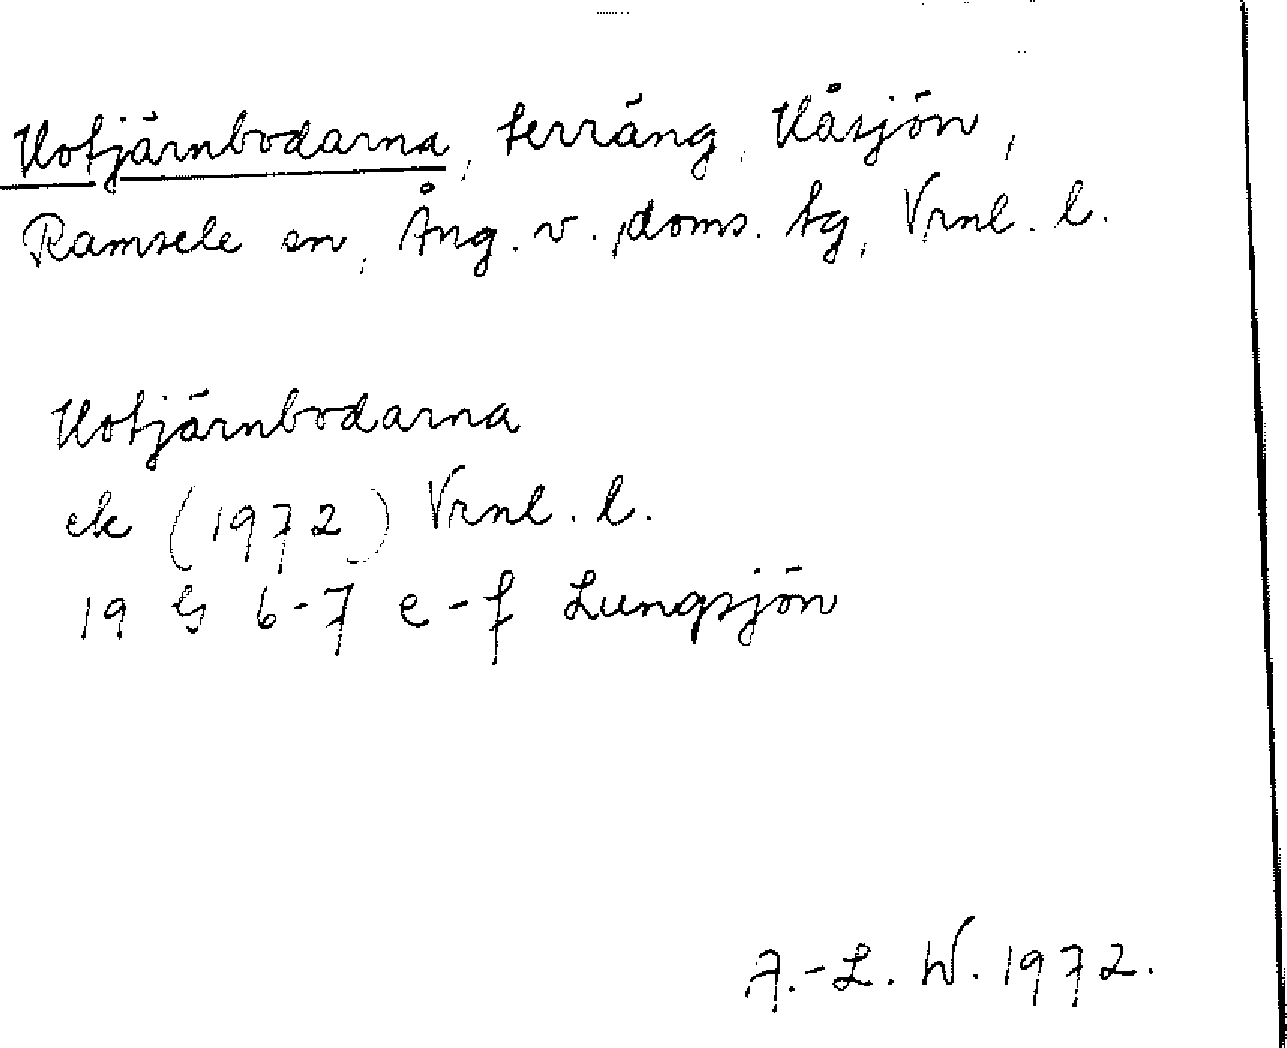 Kotjärnbodarna, terräng, Kåsjön,
Ramsele sn, Ång. v. doms. tg, Vrnl. l.
Kotjärnbodarna
ek (1972) Vrnl. l.
19 G 6-7 e-f Lungsjön
A.-L. W. 1972.